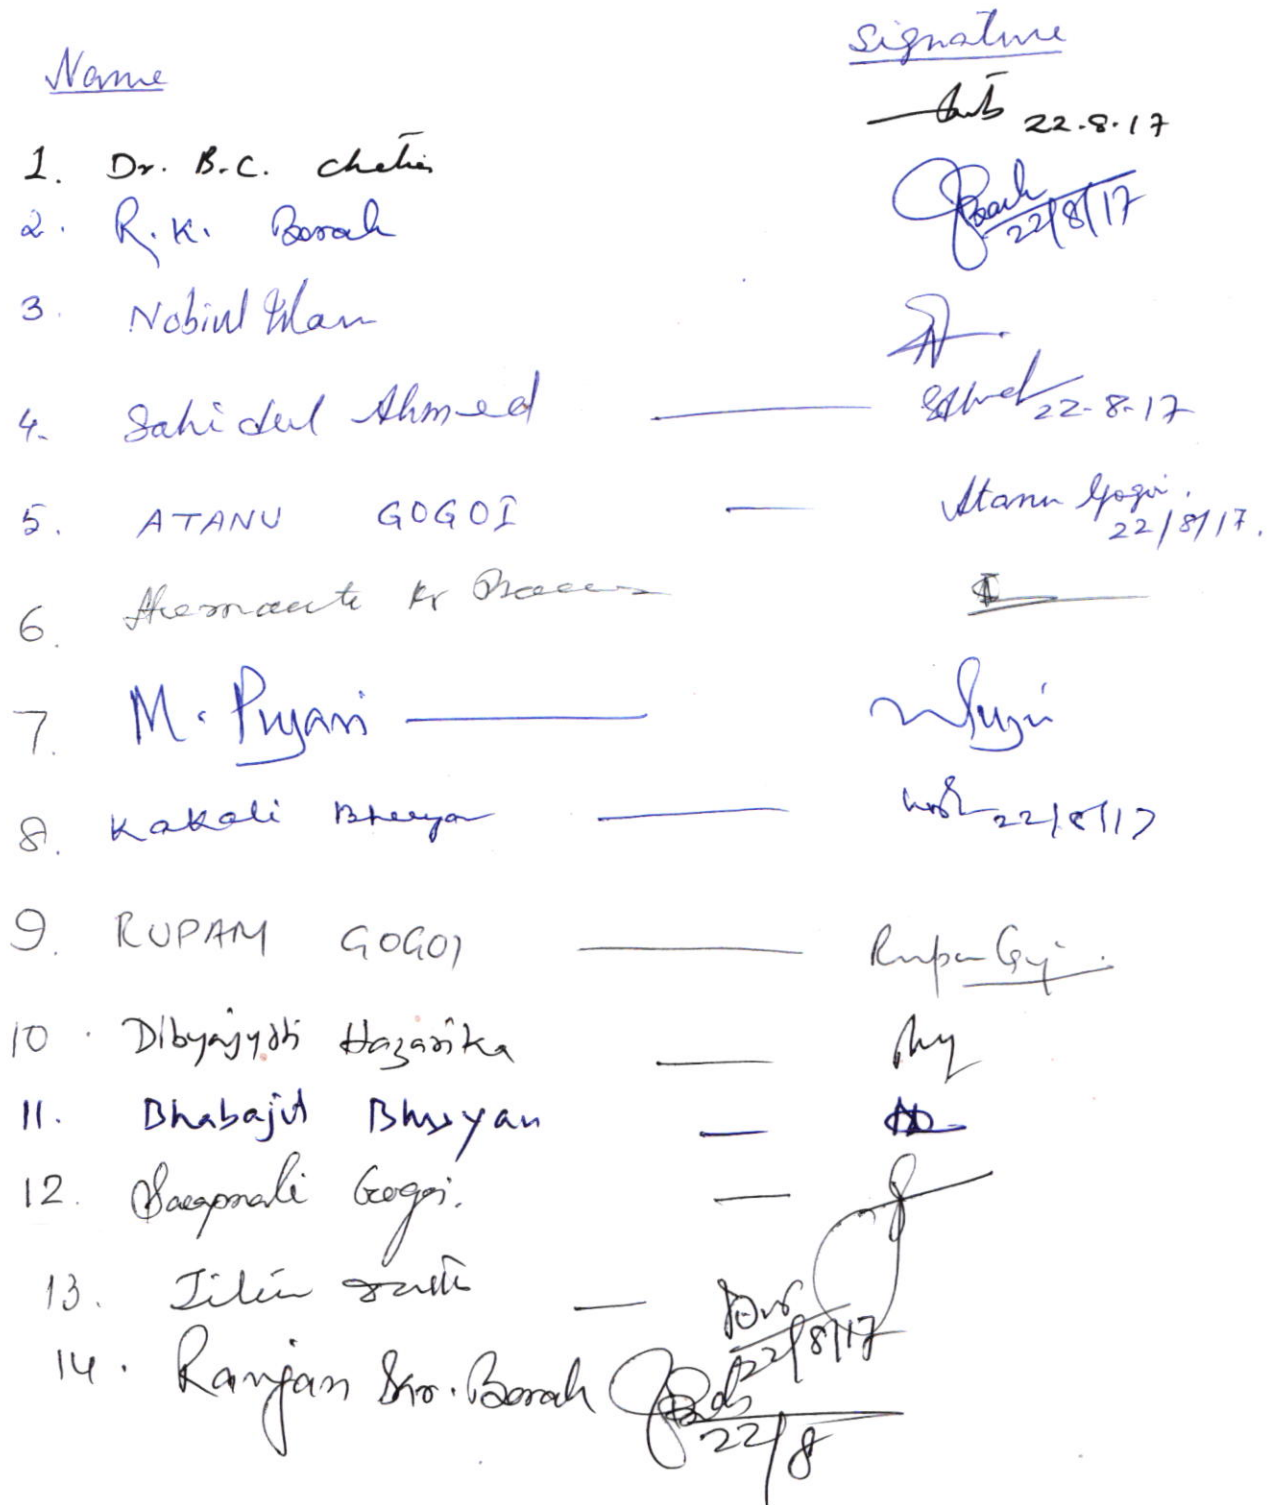 Name Signature
22.8.17
1. Dr. B.C. Chetia
2. R.K. Borah
22/8/17
3. Nobiul Islam
4. Sahidul Ahmed 22-8-17
5. ATANU GOGOI Atanu Gogoi.
22/8/17.
6. Kr
7. M. Pujari
8. Kakali Bhuyan 22/8/17
9. RUPAM GOGOI Rupam Gogoi.
10. Dibyajyoti Hazarika
11. Bhabajit Bhuyan
12. Gogoi.
13. Jitin
22/8/17
14. Ranjan Kr. Borah
22/8